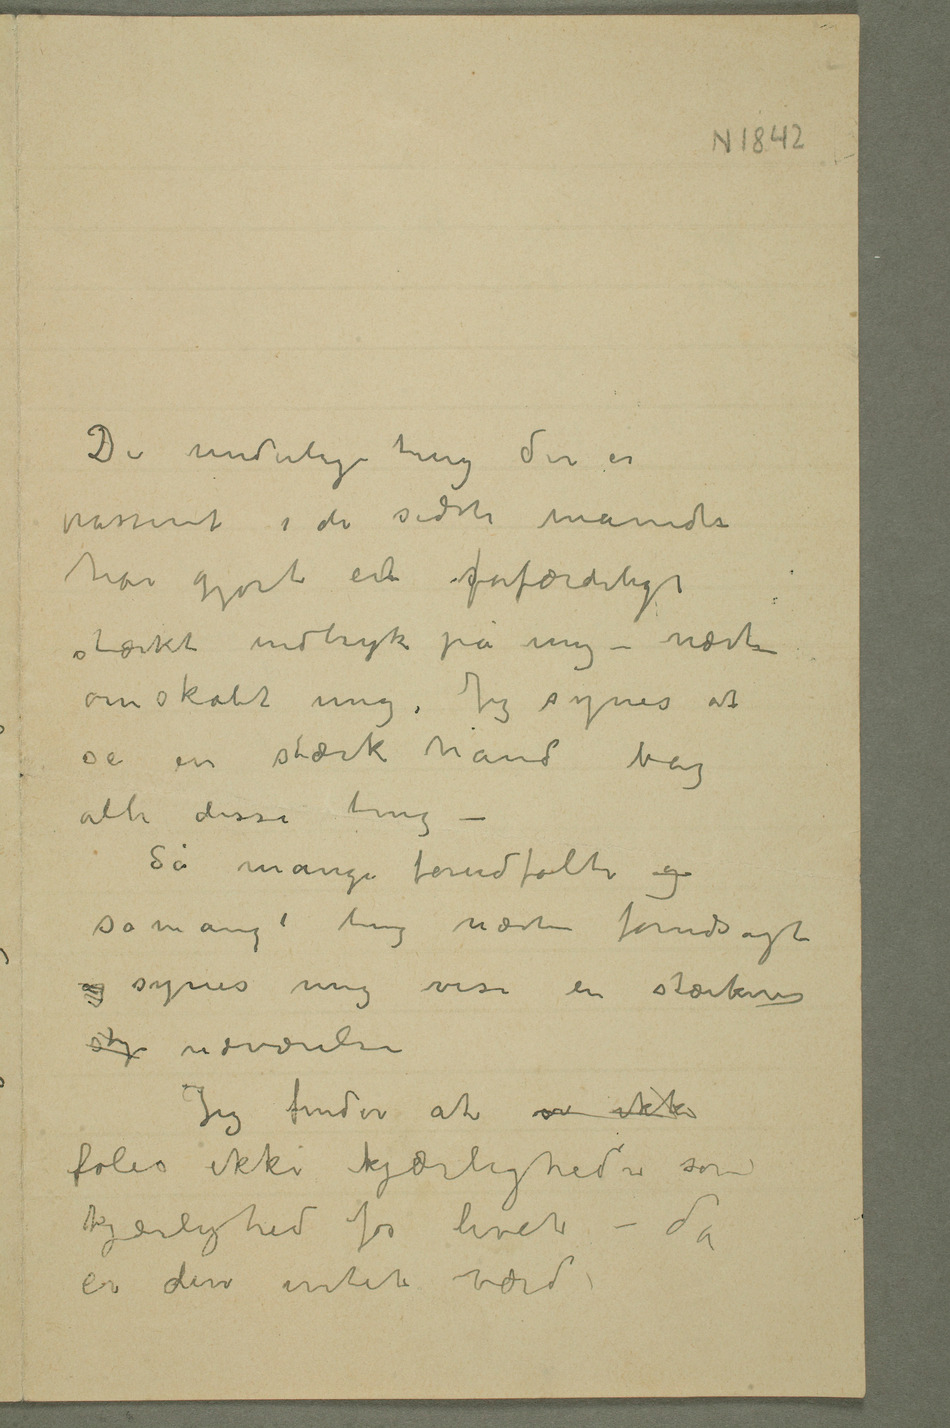 N 1842
De underlige ting der er
passeret i de sidste måneder
har gjort et forfærdeligt
stærkt indtryk på mig – næsten
omskabt mig. Jeg synes at
se en stærk hånd bag
alle disse ting –
Så mange forudfølte og
så mange ting næsten forudsagte
og synes mig vise en stærkeres
nærværelse
Jeg finder at er ikke
føles ikke kjærligheden som
kjærlighed for livet – da
er den intet værd